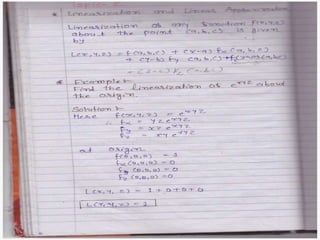 * Linearization and Linear Approximation
Linearization of any function f(x,y,z)
about the point (a,b,c) is given
by
L(x,y,z) = f(a,b,c) + (x-a) fx (a,b,c)
+ (y-b) fy (a,b,c)
+ (z-c) fz (a,b,c)
* Example:-
Find the linearization of e^xyz about
the origin.
Solution:-
Here f(x,y,z) = e^xyz
∴ fx = yz e^xyz
fy = xz e^xyz
fz = xy e^xyz
at origin
f(0,0,0) = 1
fx(0,0,0) = 0
fy (0,0,0) = 0
fz (0,0,0) = 0
L(x,y,z) = 1+0+0+0
L(x,y,z) = 1